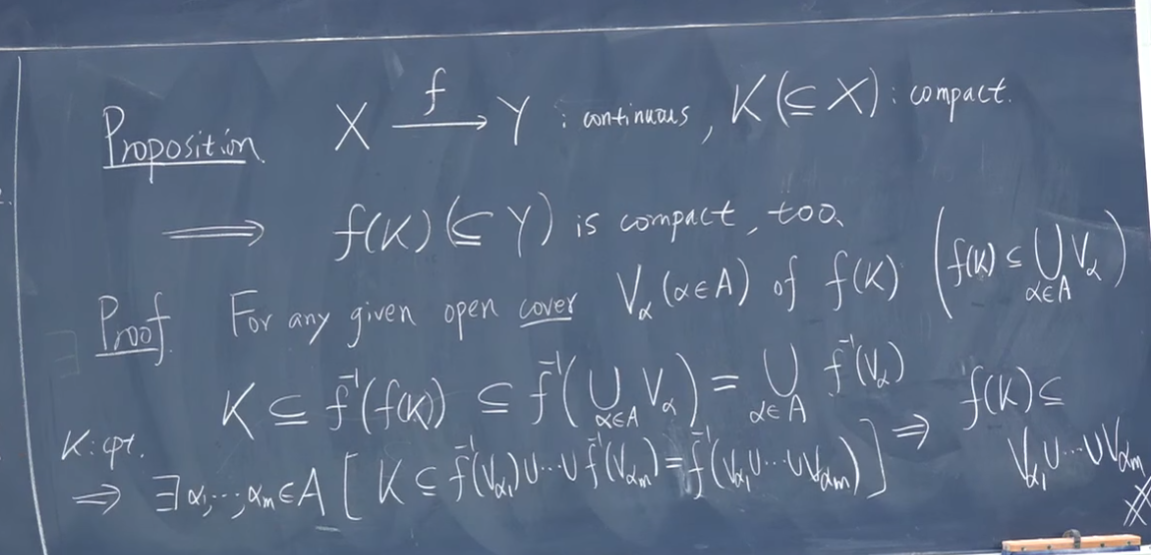 Proposition X —f→ Y : continuous, K(⊆ X) : compact.
⟹ f(K) (⊆ Y) is compact, too.
Proof. For any given open cover V_α (α∈A) of f(K) (f(K) ⊆ ⋃_{α∈A} V_α)
K ⊆ f⁻¹(f(K)) ⊆ f⁻¹(⋃_{α∈A} V_α) = ⋃_{α∈A} f⁻¹(V_α)
K : cpt.
⟹ ∃α₁, ⋯, α_m ∈ A [ K ⊆ f⁻¹(V_{α₁}) ∪ ⋯ ∪ f⁻¹(V_{α_m}) = f⁻¹(V_{α₁} ∪ ⋯ ∪ V_{α_m}) ] ⟹ f(K) ⊆
V_{α₁} ∪ ⋯ ∪ V_{α_m}